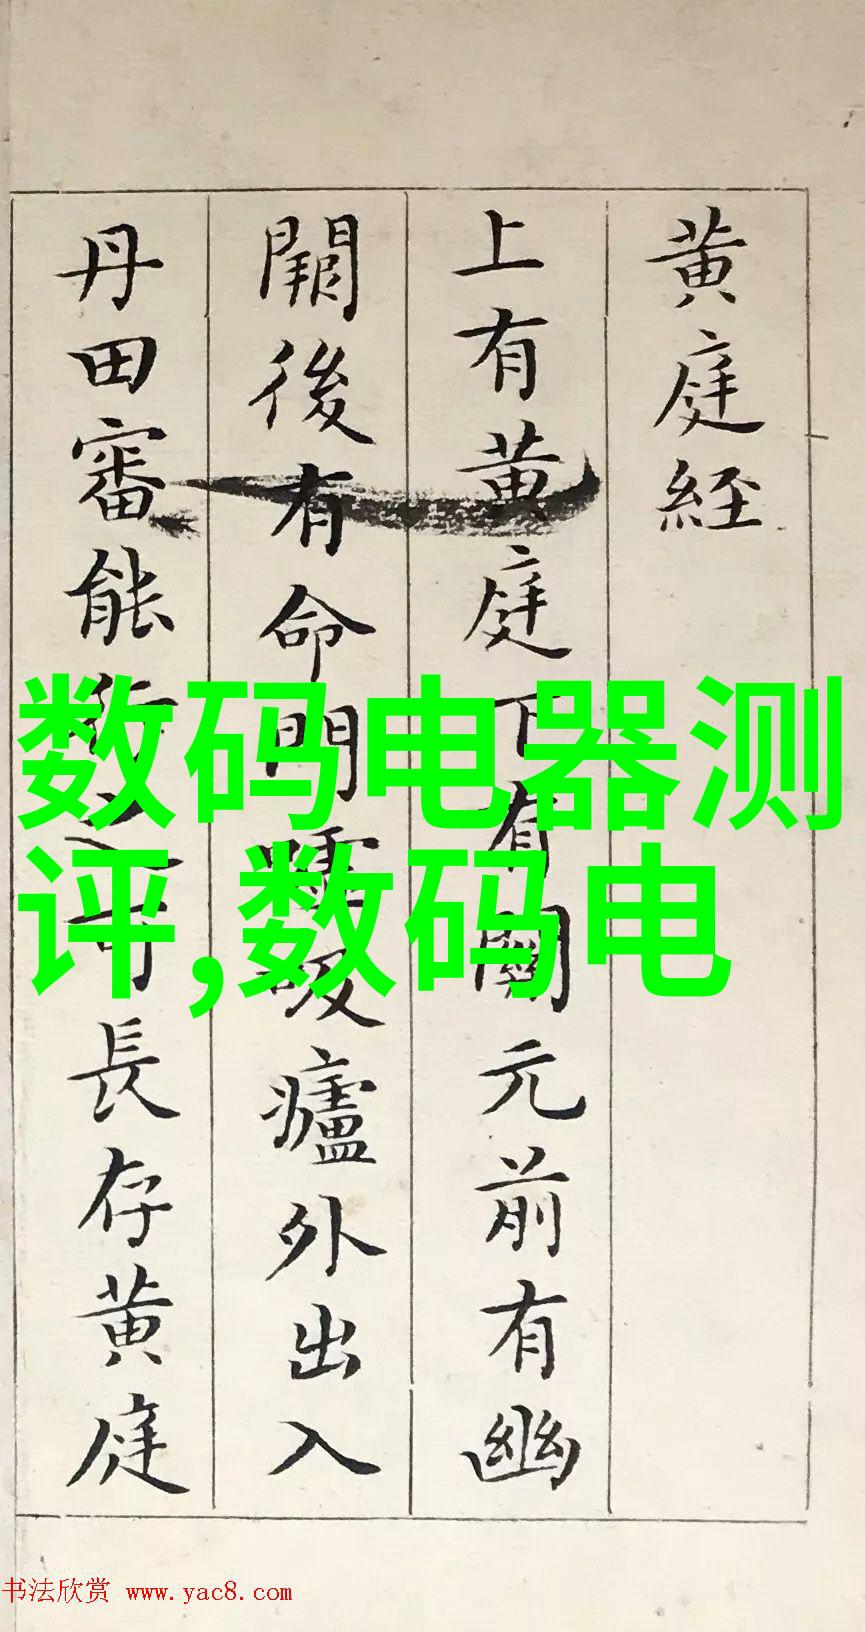 黄庭経
上有黄庭下有關元前有幽
闕後有命門嘘吸廬外出入
丹田審能行之可長存黄庭
数码电器测
评,数码电
书法欣赏 www.yac8.com